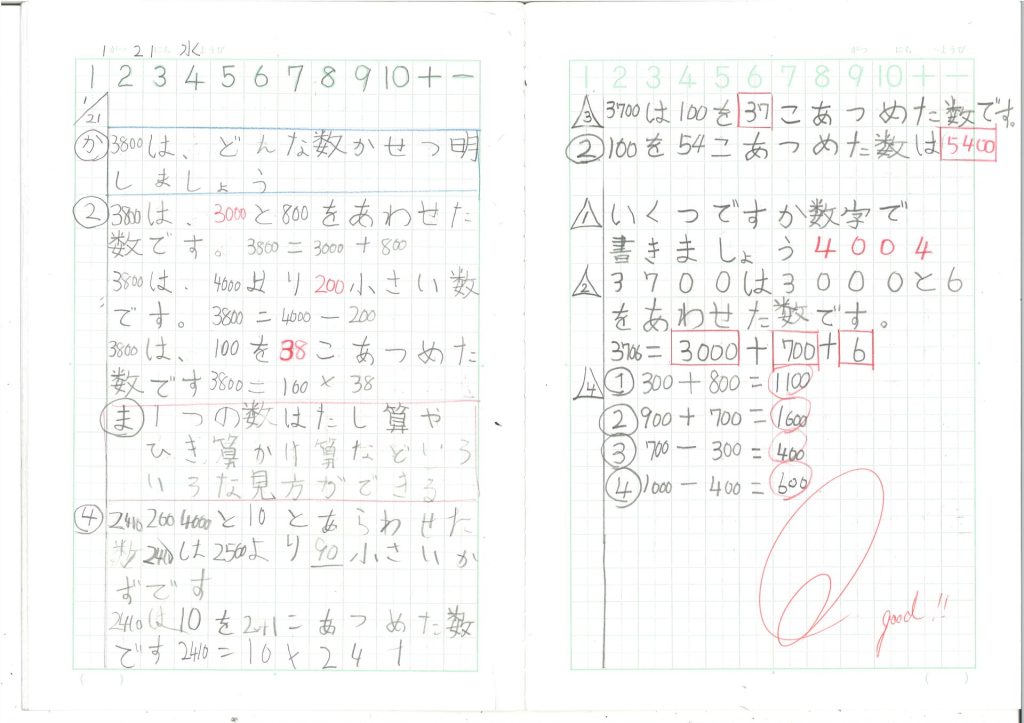 1がつ 21にち 水ようび
1 2 3 4 5 6 7 8 9 10 + −
1/21
か 3800は、どんな数かせつ明
しましょう
② 3800は、3000と800をあわせた
数です。3800=3000+800
3800は、4000より200小さい数
です。3800=4000−200
3800は、100を38こあつめた
数です3800=100×38
ま 1つの数はたし算や
ひき算かけ算などいろ
いろな見方ができる
④ 2410 200 4000と10とあらわせた
数2410は2500より90小さいか
ずです
2410は10を241こあつめた数
です2410=10×241
がつ にち ようび
1 2 3 4 5 6 7 8 9 10 + −
3 3700は100を37こあつめた数です。
② 100を54こあつめた数は5400
1 いくつですか数字で
書きましょう4004
2 3700は3000と6
をあわせた数です。
3706=3000+700+6
4 ①300+800=1100
②900+700=1600
③700−300=400
④1000−400=600
good!!